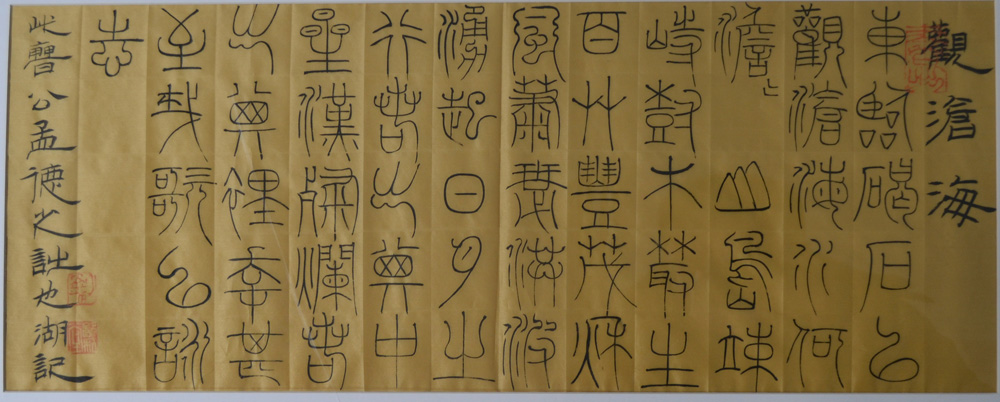 觀滄海
東臨碣石以
觀滄海水何
澹〻山島竦
峙樹木叢生
百艸豐茂秌
風蕭瑟洪波
湧起日月之
行若出其中
星漢燦爛若
出其裡幸甚
至哉歌以詠
志
此曹公孟德之詩也湖記